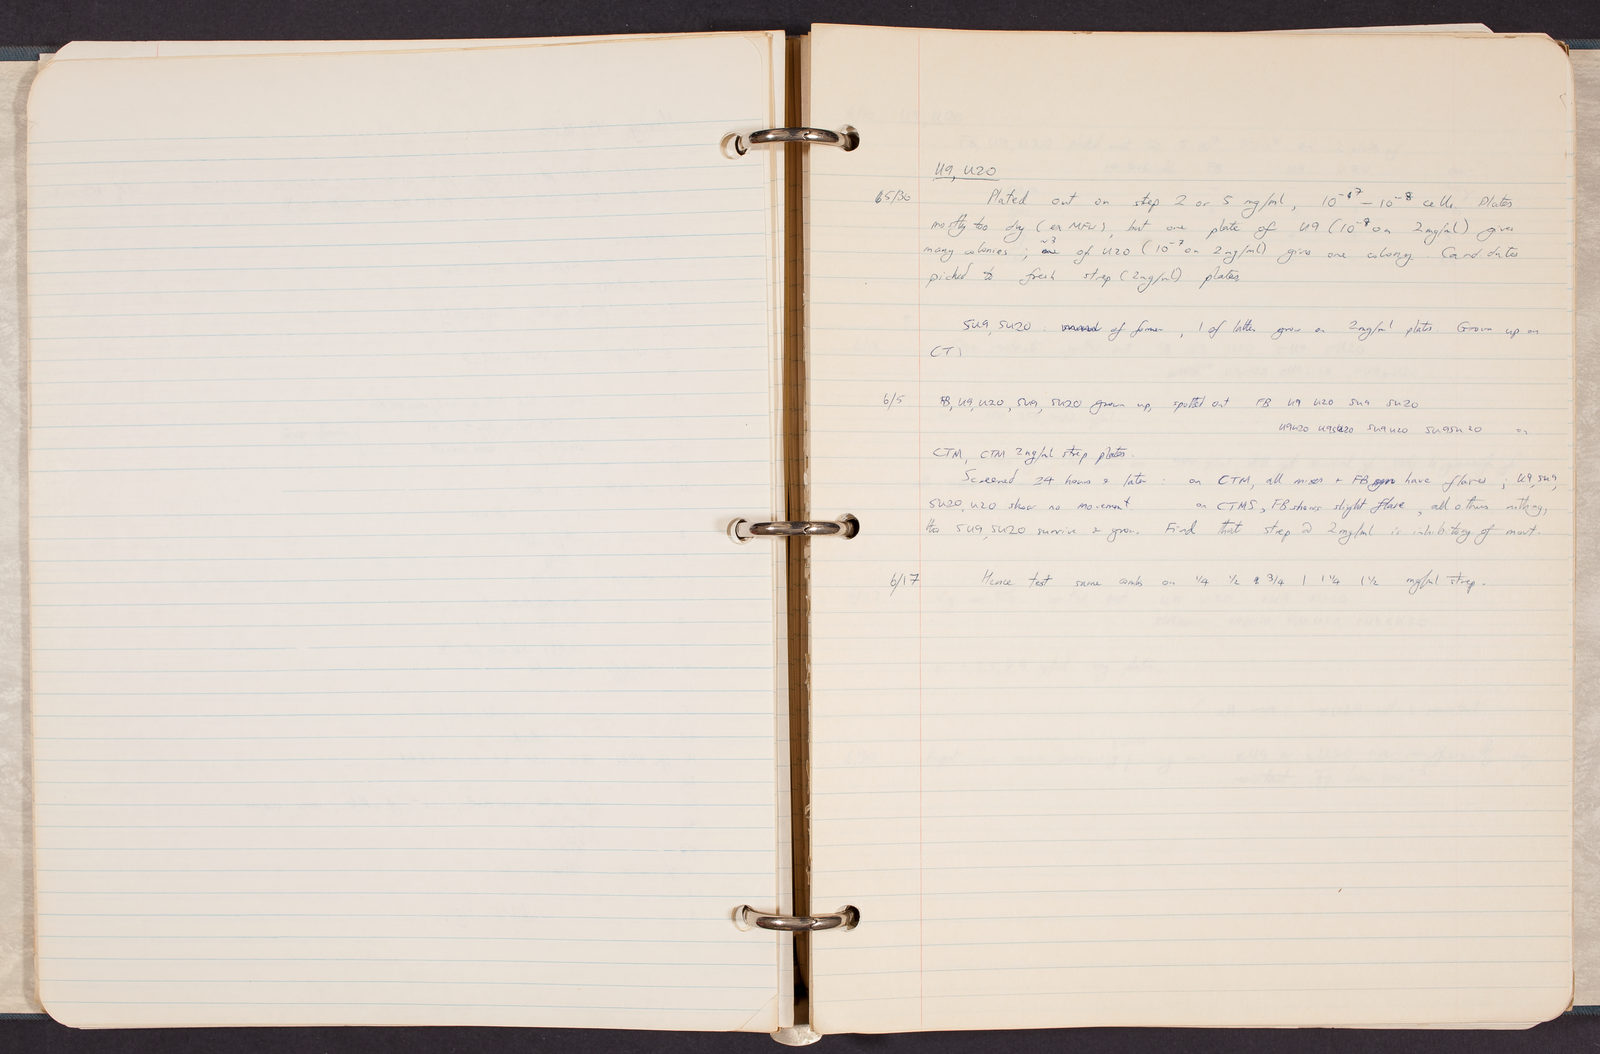 U9, U20
5/30 Plated out on strep 2 or 5 mg/ml, 10⁻⁷ – 10⁻⁸ cells. Plates
mostly too dry (ex MFU), but one plate of U9 (10⁻⁷ on 2mg/ml) gives
many colonies; ~3 of U20 (10⁻⁷ on 2mg/ml) give one colony. Candidates
picked to fresh strep (2mg/ml) plates
SU9, SU20: of former, 1 of latter grow on 2mg/ml plates. Grown up on
CT1
6/5 FB, U9, U20, SU9, SU20 grown up, spotted out FB U9 U20 SU9 SU20
U9U20 U9SU20 SU9U20 SU9SU20 on
CTM, CTM 2mg/ml strep plates.
Screened 24 hours + later: on CTM, all mixes + FB have flares; U9, SU9,
SU20, U20 show no movement on CTMS, FB shows slight flare, all others nothing,
tho SU9, SU20 survive + grow. Find that strep @ 2mg/ml is inhibitory of movt.
6/17 Hence test same combs on 1/4 1/2 3/4 1 1 1/4 1 1/2 mg/ml strep.